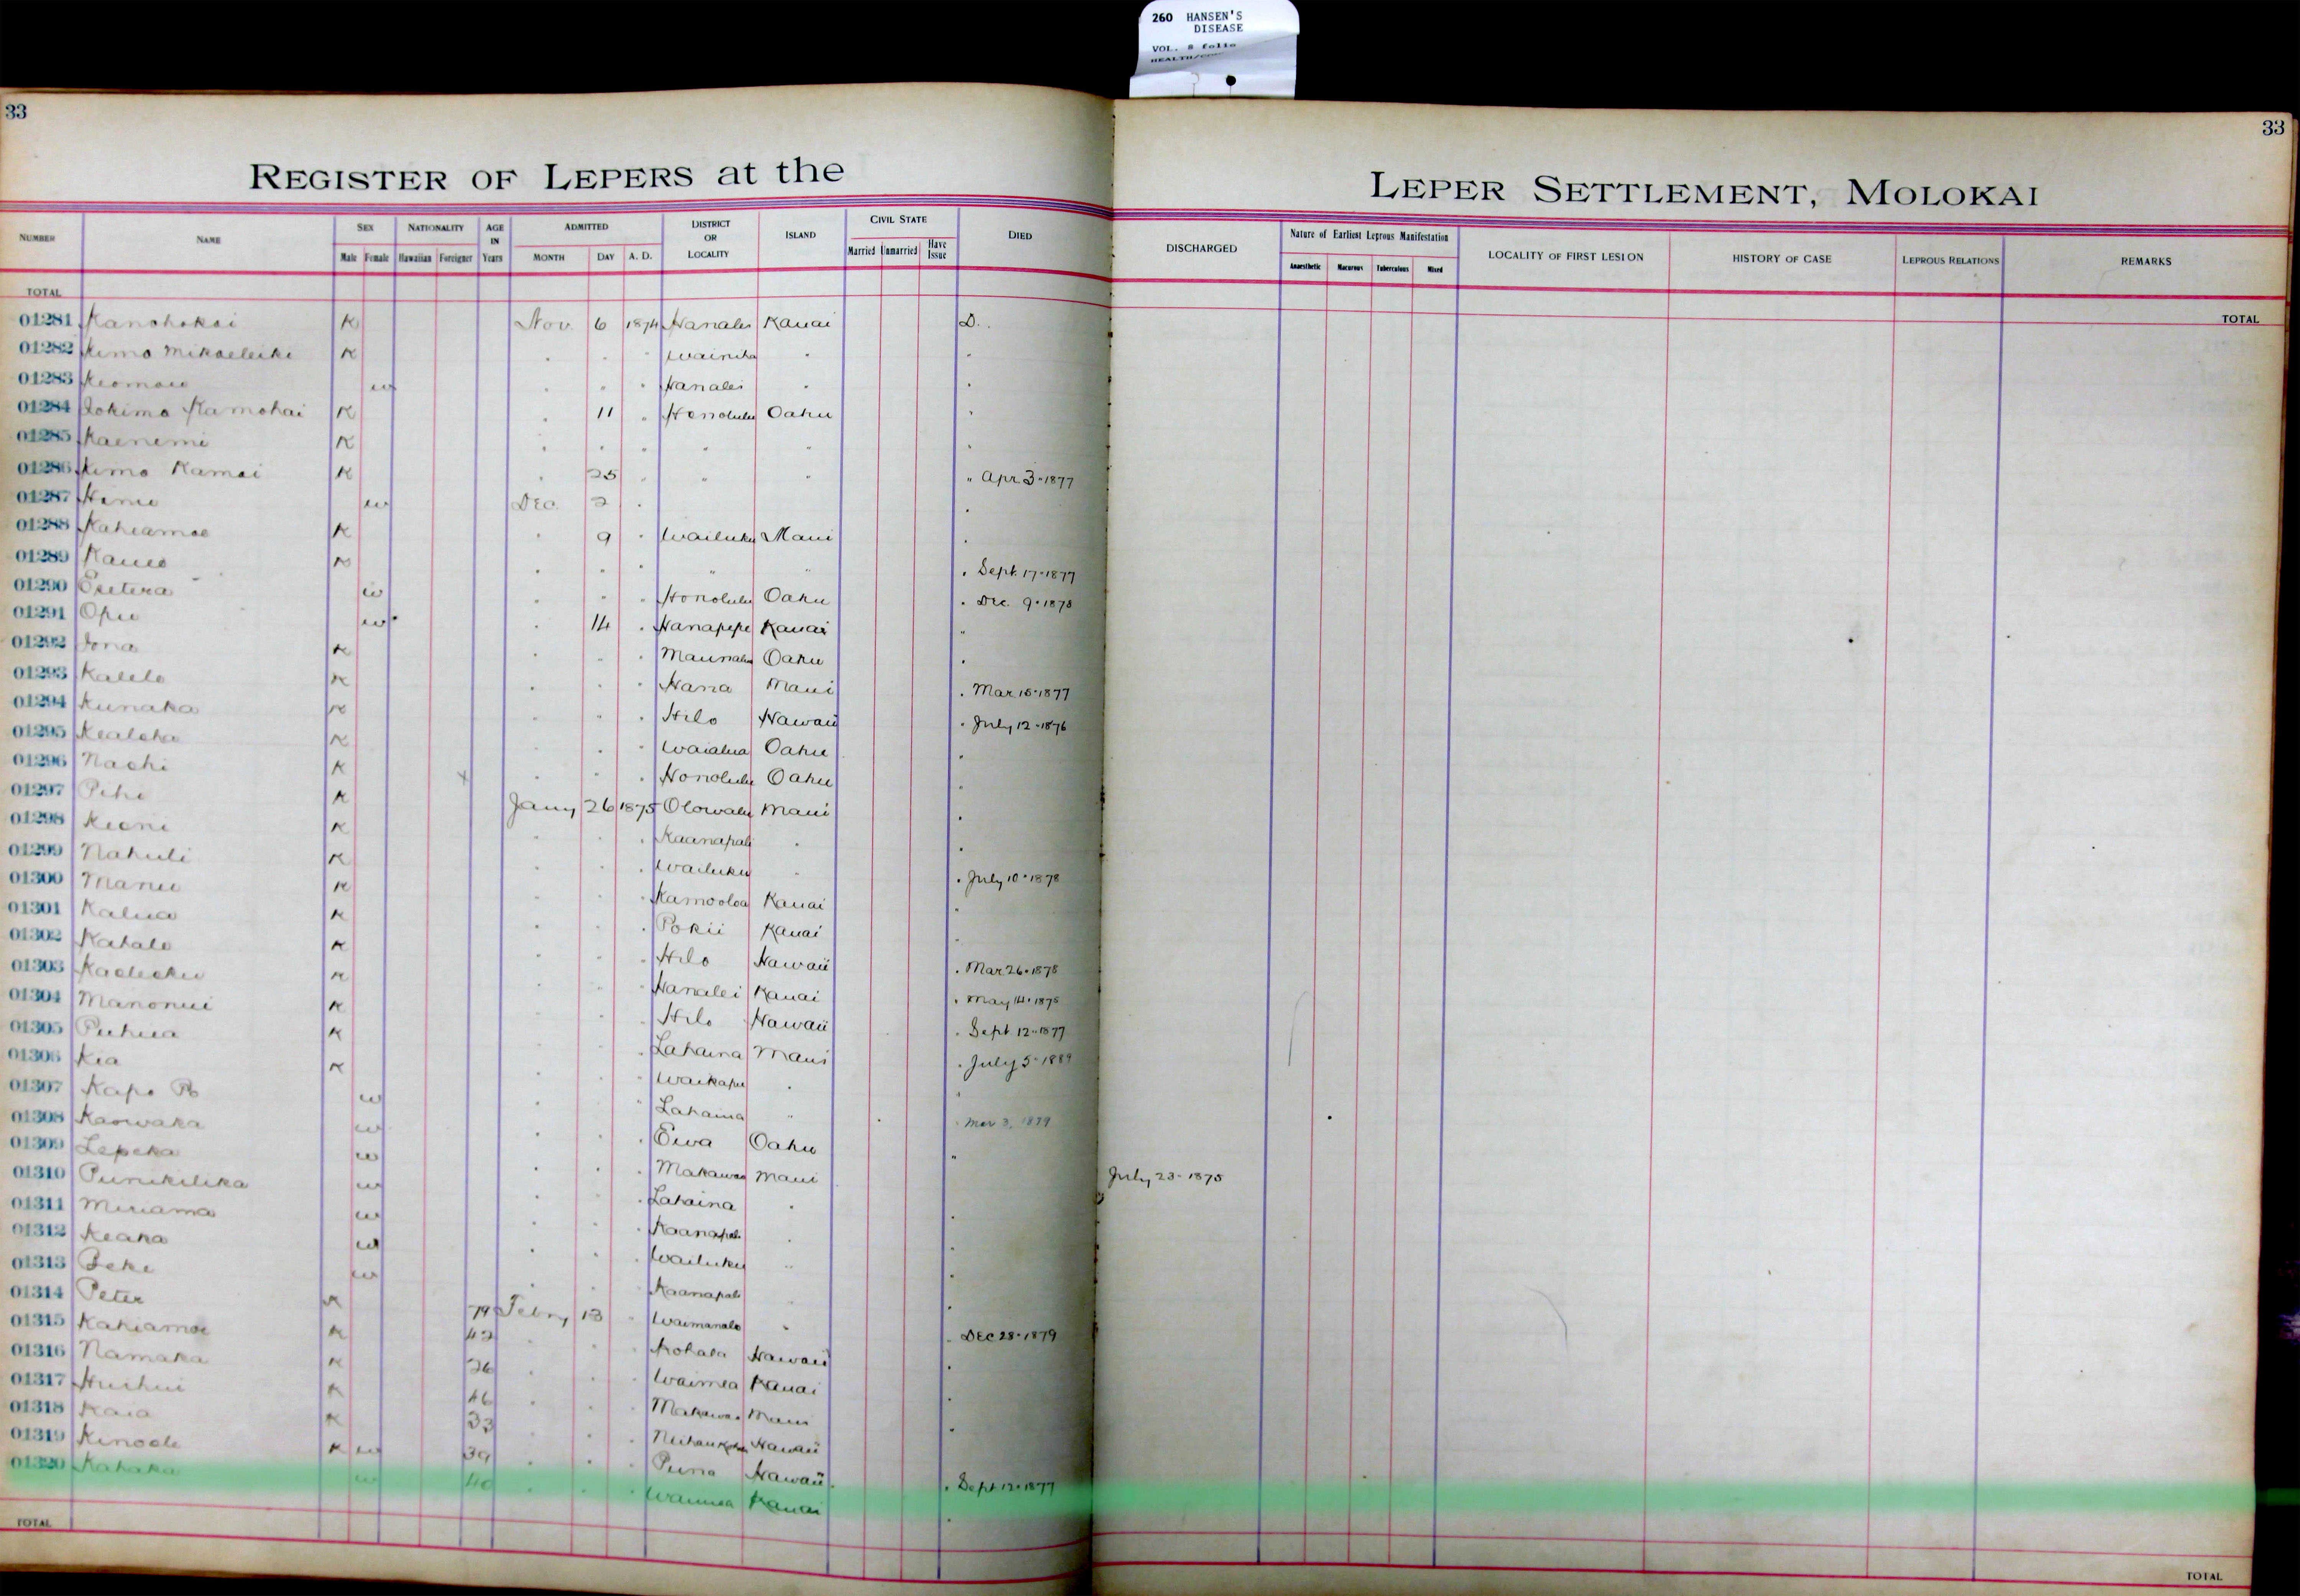 260 HANSEN'S
DISEASE
VOL. 8 folio
33
33
REGISTER OF LEPERS at the LEPER SETTLEMENT, MOLOKAI
NUMBER NAME SEX Male Female NATIONALITY Hawaiian Foreigner AGE IN Years ADMITTED MONTH DAY A. D. DISTRICT OR LOCALITY ISLAND CIVIL STATE Married Unmarried Have Issue DIED DISCHARGED Nature of Earliest Leprous Manifestation Anaesthetic Macurous Tuberculous Mixed LOCALITY OF FIRST LESION HISTORY OF CASE LEPROUS RELATIONS REMARKS
TOTAL TOTAL
01281 Kanohokai K Nov. 6 1874 Hanalei Kauai D.
01282 Kimo Mikaeleike K " " " Wainiha " "
01283 Keomaw w " " " Hanalei " "
01284 Iokimo Kamohai K " 11 " Honolulu Oahu "
01285 Kaenemi K " " " " " "
01286 Kimo Kamai K " 25 " " " " Apr 3-1877
01287 w Dec. 2 " "
01288 Kahiamoe K " 9 " Wailuku Maui "
01289 Kaueo K " " " " " " Sept. 17-1877
01290 w " " " Honolulu Oahu " Dec. 9-1878
01291 Opu w " 14 " Hanapepe Kauai "
01292 Iona K " " " Maunalua Oahu "
01293 Kalelo K " " " Hana Maui " Mar 15-1877
01294 Kunaka K " " " Hilo Hawaii " July 12-1876
01295 Kealoha K " " " Waialua Oahu "
01296 Naohi K x " " " Honolulu Oahu "
01297 Pihi K Jany 26 1875 Olowalu Maui "
01298 Keoni K " " " Kaanapali " "
01299 Nahuli K " " " Wailuku " " July 10-1878
01300 Manu K " " " Kamooloa Kauai "
01301 Kalua K " " " Pokii Kauai "
01302 Kahalo K " " " Hilo Hawaii " Mar 26-1878
01303 K " " " Hanalei Kauai " May 14-1875
01304 Manonui K " " " Hilo Hawaii " Sept 12-1877
01305 Puhua K " " " Lahaina Maui " July 5-1889
01306 Kia K " " " Waikapu " "
01307 Kapo Po w " " " Lahaina " " Mar 3, 1879
01308 Kaowaka w " " " Ewa Oahu "
01309 Lepeka w " " " Makawao Maui July 23-1875
01310 Punikilika w " " " Lahaina " "
01311 Miriama w " " " Kaanapali " "
01312 Keaka w " " " Wailuku " "
01313 Beke w " " " Kaanapali " "
01314 Peter K 79 Febry 13 " Waimanalo " " Dec 28-1879
01315 Kahiamoe K 42 " " " Kohala Hawaii "
01316 Namaka K 26 " " " Waimea Kauai "
01317 Huihui K 46 " " " Makawao Maui "
01318 Kaia K 33 " " " Hawaii
01319 Kinoole K w 39 " " " Puna Hawaii " Sept 12-1877
01320 Kahaka w 40 " " " Waimea Kauai "
TOTAL TOTAL